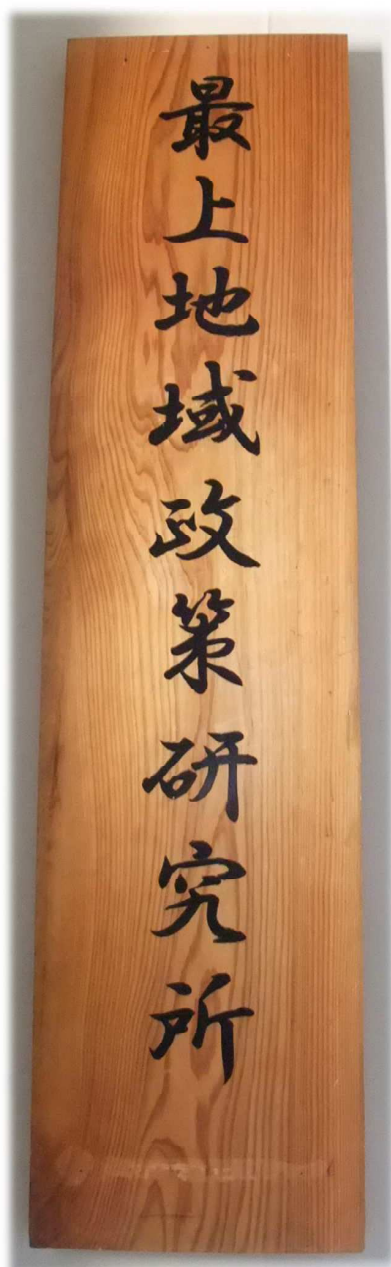 最上地域政策研究所